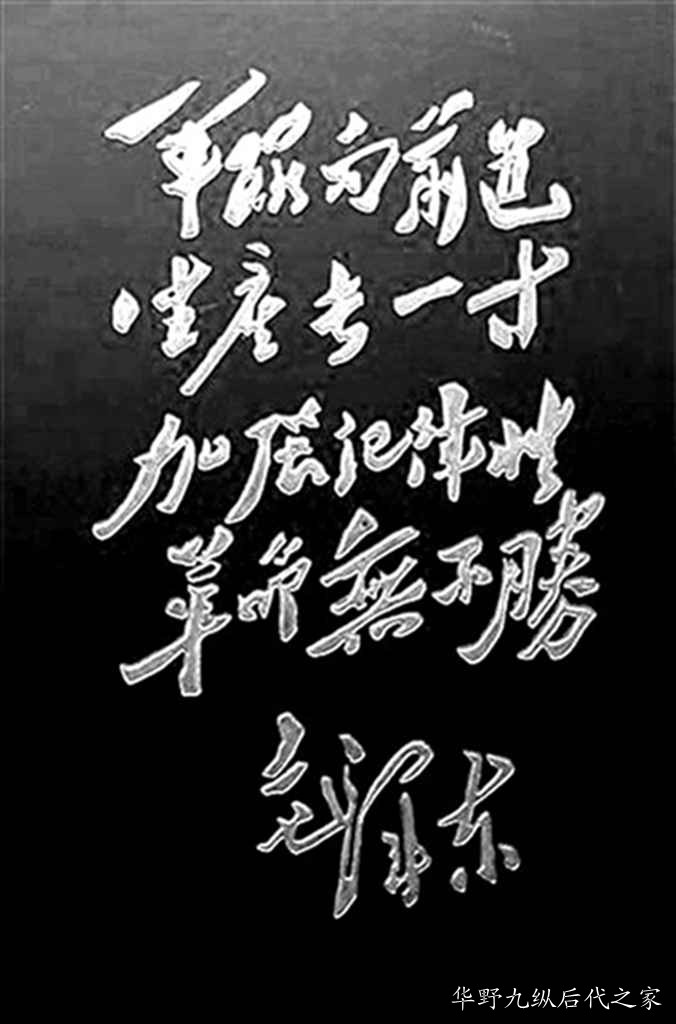 军队向前进
生产长一寸
加强纪律性
革命無不勝
毛泽东
华野九纵后代之家